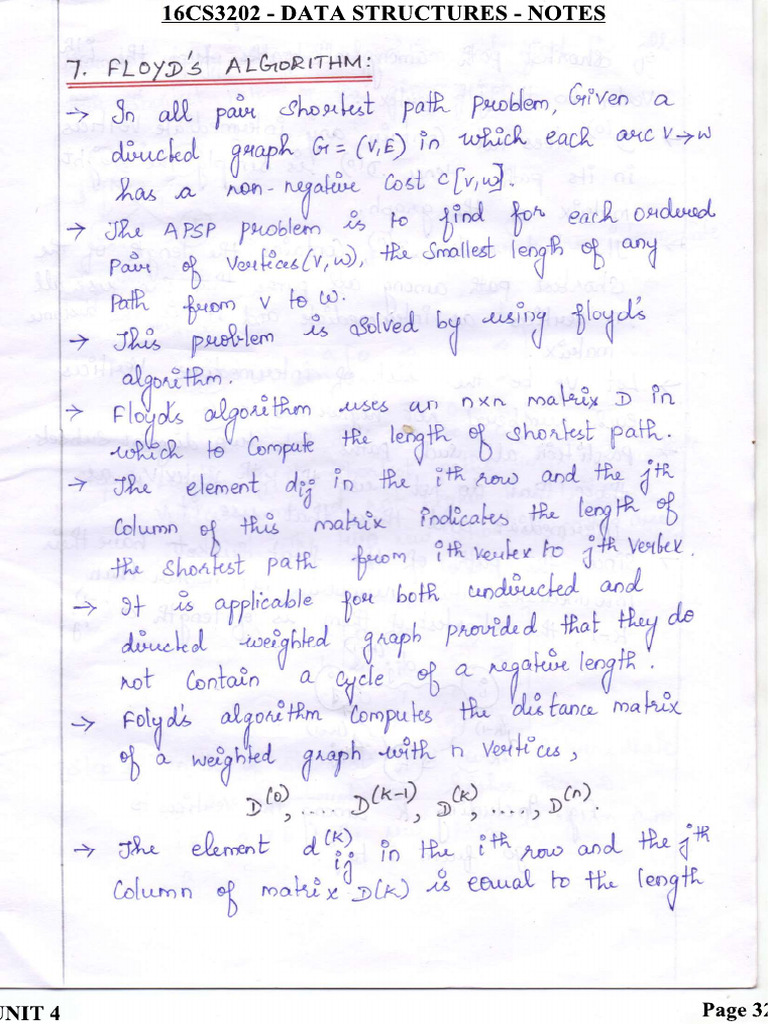 16CS3202 - DATA STRUCTURES - NOTES
7. FLOYD'S ALGORITHM:
→ In all pair shortest path problem, Given a
directed graph G = (V,E) in which each arc V→W
has a non-negative cost C[V,W].
→ The APSP problem is to find for each ordered
pair of vertices (V,W), the smallest length of any
path from V to W.
→ This problem is solved by using floyd's
algorithm.
→ Floyd's algorithm uses an n×n matrix D in
which to compute the length of shortest path.
→ The element dij in the ith row and the jth
column of this matrix indicates the length of
the shortest path from ith vertex to jth vertex.
→ It is applicable for both undirected and
directed weighted graph provided that they do
not contain a cycle of a negative length.
→ Folyd's algorithm computes the distance matrix
of a weighted graph with n vertices,
D(0), .... D(k-1), D(k), ...., D(n).
→ The element d(k)ij in the ith row and the jth
column of matrix D(k) is equal to the length
UNIT 4
Page 32